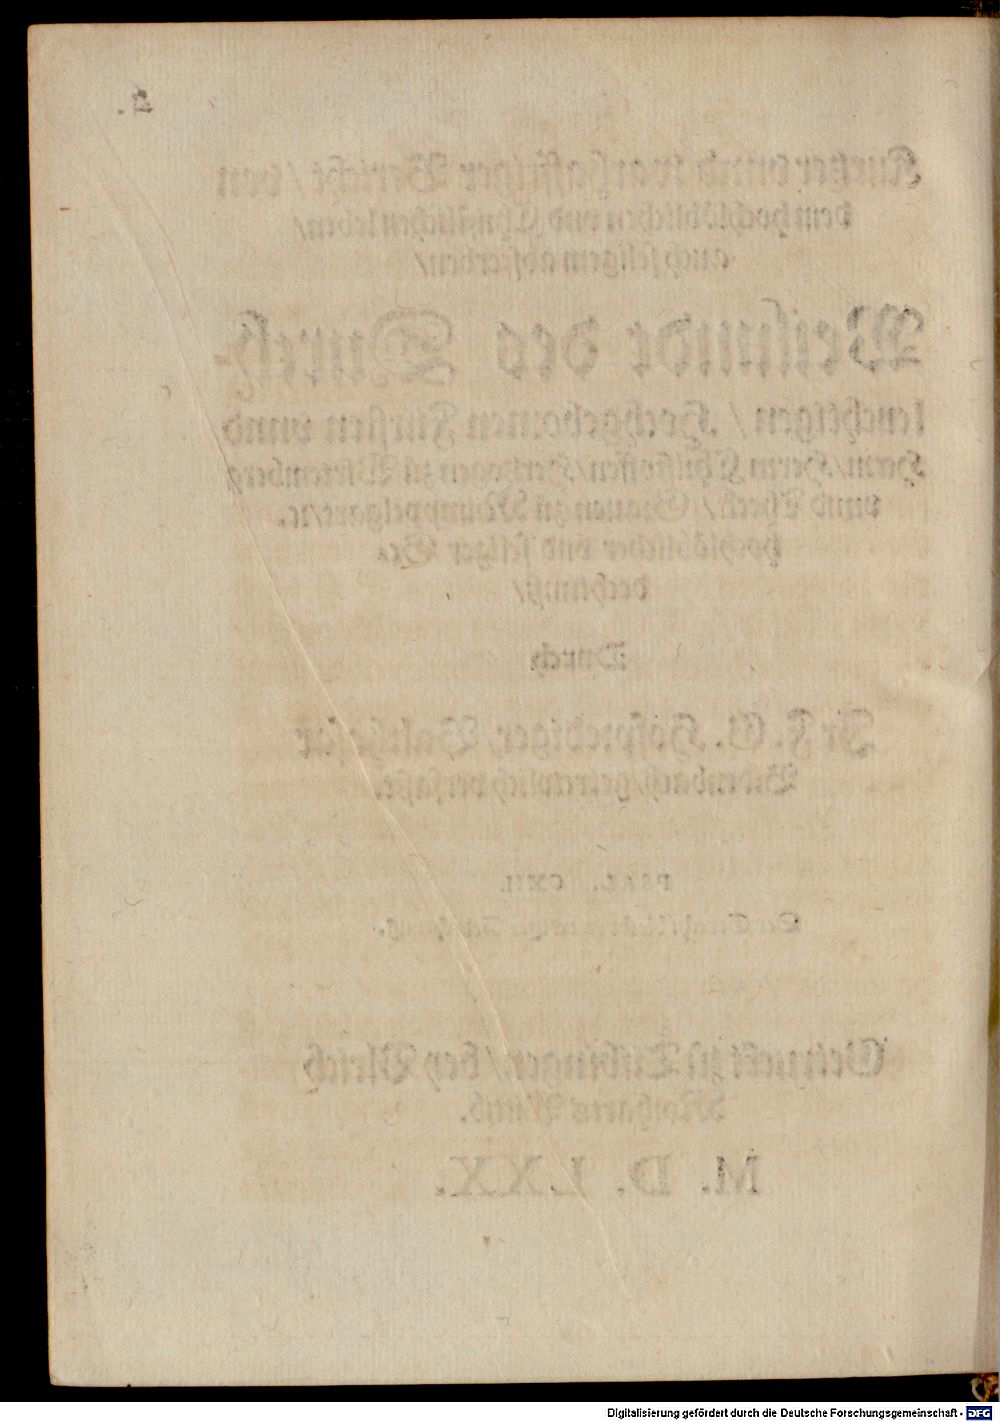 2.
Kurtzer vnnd warhafftiger Bericht / von
dem hochlöblichen vnd Christlichen leben /
auch seligem absterben /
Weilundt des Durch-
leuchtigen / Hochgebornen Fürsten vnnd
Herrn / Herrn Christoffen / Hertzogen zu Würtemberg
vnnd Theck / Grauen zu Mümppelgart / ⁊c.
hochlöblicher vnd seliger Ge-
dechtnuß /
Durch
Ir F. G. Hofprediger, Balthasar
Bidenbach / getrewlich verfaßt.
PSAL. CXII.
Getruckt zu Tübingen / bey Vlrich
Morharts Wittib.
M. D. LXX.
Digitalisierung gefördert durch die Deutsche Forschungsgemeinschaft - DFG